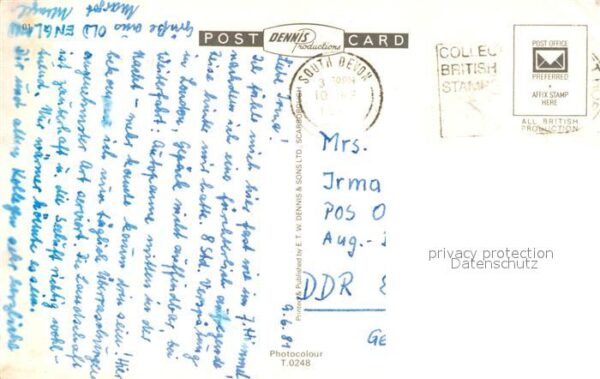 POST DENNIS Productions CARD
9.6.81
Liebe Irma!
Ich fühle mich hier fast wie im 7. Himmel,
nachdem ich eine fürchterlich aufregende
Reise hinter mir hatte. 8 Std. Verspätung
in London, Gepäck nicht auffindbar, bei
Weiterfahrt: Autopanne mitten in der
Nacht – mehr konnte kaum drin sein! Hier
bekomme ich nun täglich Überraschungen
angenehmster Art serviert. Die Landschaft
ist zauberhaft u. die Seeluft richtig wohl-
tuend. Nur wärmer könnte es sein.
Dir und allen Kollegen sehr herzliche
Grüße aus OLD ENGLAND
Margot
Printed & Published by E.T.W. DENNIS & SONS LTD., SCARBOROUGH
Photocolour
T.0248
SOUTH DEVON
COLLEC
BRITISH
STAMPS
POST OFFICE
PREFERRED
AFFIX STAMP
HERE
ALL BRITISH
PRODUCTION
Mrs.
Irma
POS O
Aug.-
DDR
Ge
privacy protection
Datenschutz